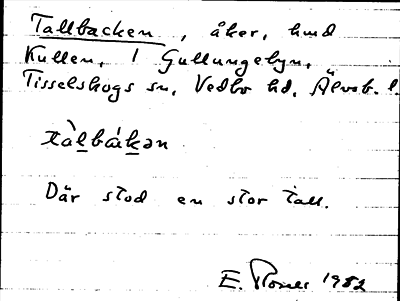 Tallbacken, åker, hmd
Kullen, 1 Gullungebyn,
Tisselskogs sn, Vedbo hd, Älvsb. l.
tàlbákən
Där stod en stor tall.
E. 1982